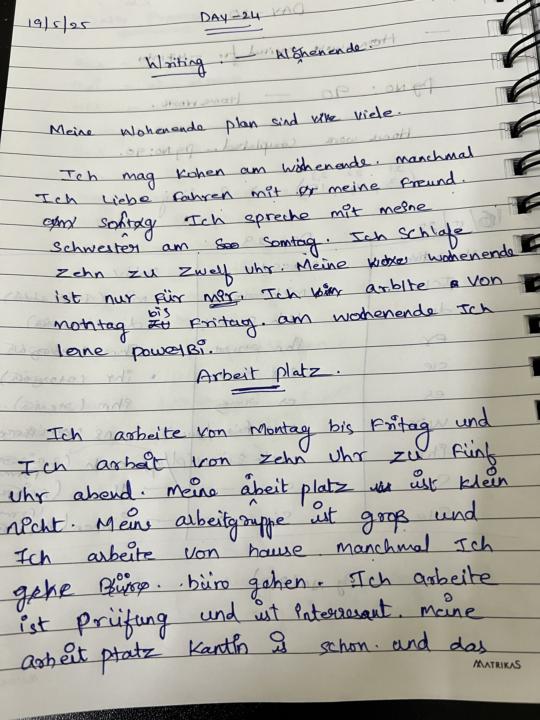 19/5/25
DAY-24
Writing :- Wohenende.
Meine Wohenende plan sind viele.
Ich mag Kohen am wohenende. manchmal
Ich Liebe Fahren mit meine Freund.
sontag Ich spreche mit meine
Schwester am Somtag. Ich Schlafe
zehn zu zwelf Uhr. Meine wohenende
ist nur für mir. Ich arbite von
mohtag bis Fritag. am wohenende Ich
lerne powerBi.
Arbeit platz.
Ich arbeite von Montag bis Fritag und
Ich arbeit von zehn Uhr zu Fünf
Uhr abend. Meine abeit platz ist klein
nicht. Meine arbeitgruppe ist groß und
Ich arbeite von hause. manchmal Ich
gehe büro gehen. Ich arbeite
ist prüfung und ist interresant. Meine
arbeit platz Kantin is schon. und das
MATRIKAS